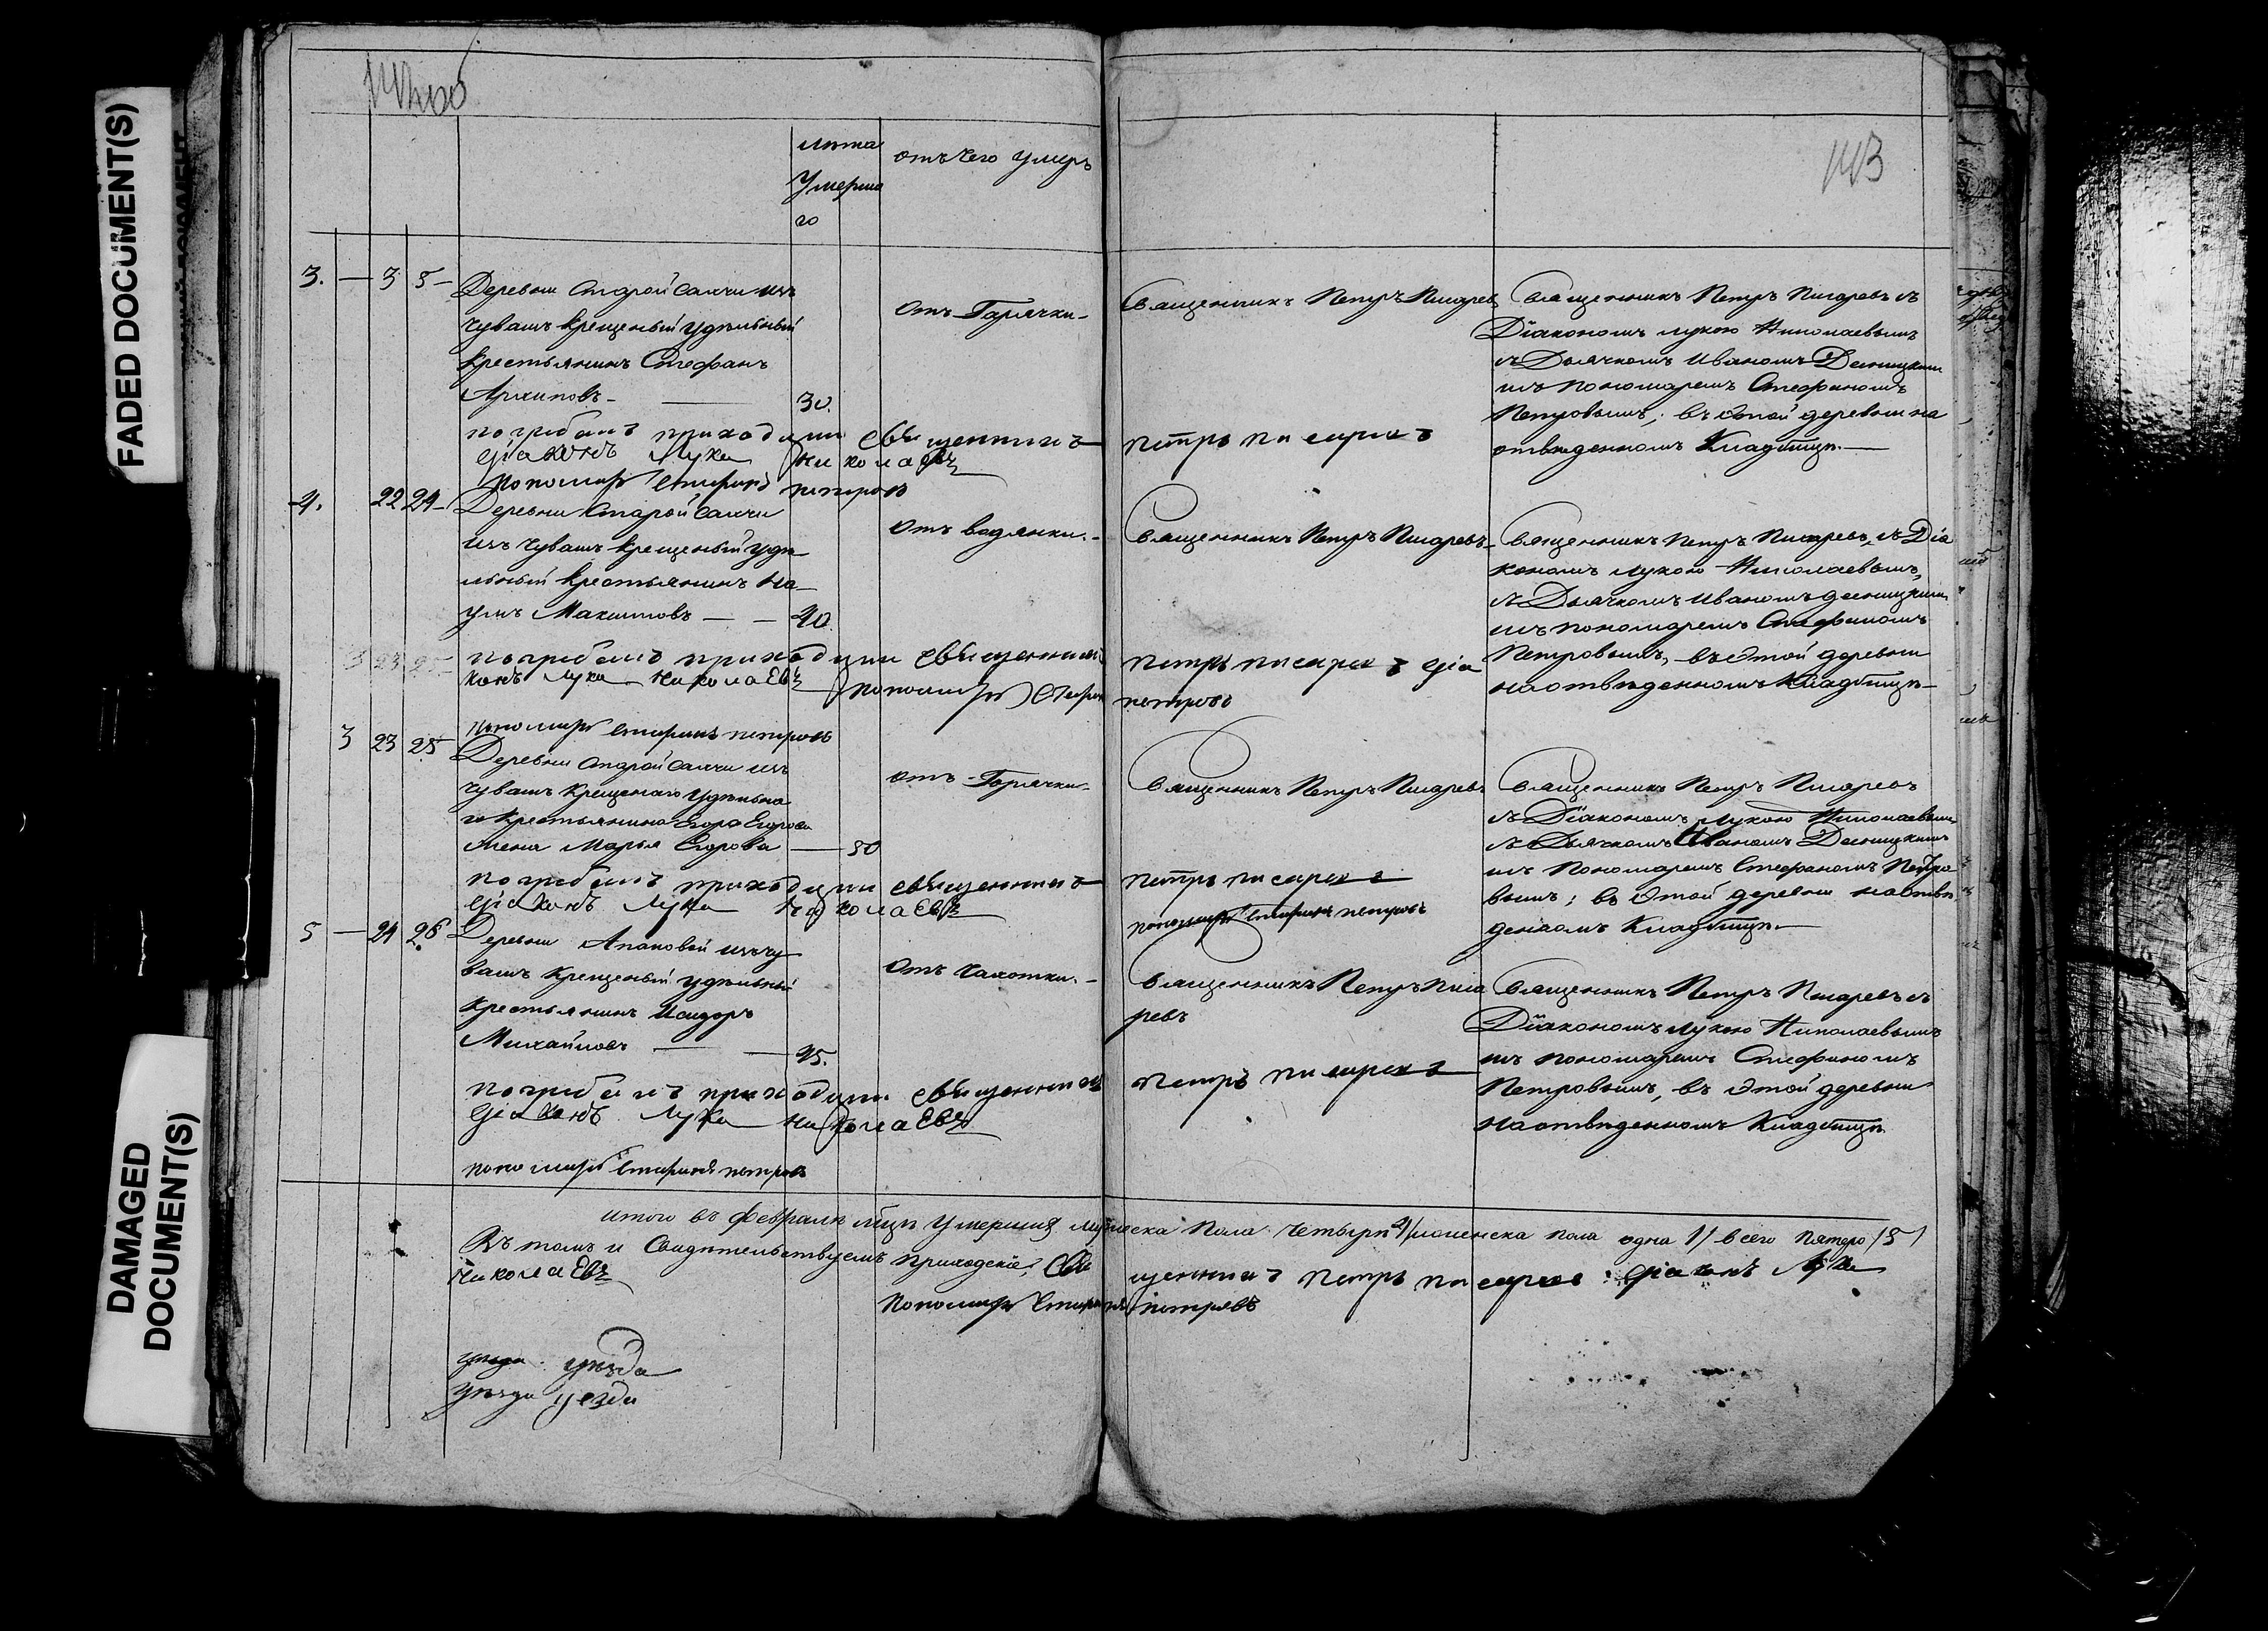 FADED DOCUMENT(S)
DAMAGED
DOCUMENT(S)
143
лѣта
Умерша
го
отъ чего умеръ
3. — 3 5 —
Деревни Старой Савчи изъ
чувашъ крещеный удѣльный
крестьянинъ Стефанъ
Архиповъ — 30.
отъ Горячки —
Священникъ Петръ Писаревъ
Священникъ Петръ Писаревъ съ
Діакономъ Лукою Николаевымъ
съ Дьячкомъ Иваномъ Десницкимъ
и съ пономаремъ Стефаномъ
Петровымъ; въ этой деревни на
отведенномъ Кладбищѣ. —
погребалъ приходцки свѣщенникъ Петръ писаревъ
діаконъ Лука николаевъ
пономарь Стефанъ петровъ
4. 22 24 —
Деревни Старой Савчи
изъ чувашъ крещеный удѣ
льный крестьянинъ На
умъ Максимовъ — — 40.
отъ водянки. —
Священникъ Петръ Писаревъ —
Священникъ Петръ Писаревъ, съ Діа
кономъ Лукою Николаевымъ,
съ Дьячкомъ Иваномъ Десницкимъ
и съ пономаремъ Стефаномъ
Петровымъ, въ этой деревни
на отведенномъ Кладбищѣ —
погребалъ приходцки свѣщенникъ Петръ писаревъ діа
конъ Лука николаевъ пономарь Стефанъ петровъ
пономарь Стефанъ петровъ
3 23 25 —
Деревни Старой Савчи изъ
чувашъ крещенаго удѣльна
го крестьянина Егора Егорова
жена Марья Егорова — 50
отъ Горячки —
Священникъ Петръ Писаревъ
Священникъ Петръ Писаревъ
съ Діакономъ Лукою Николаевымъ
съ Дьячкомъ Иваномъ Десницкимъ
и съ Пономаремъ Стефаномъ Петро
вымъ; въ этой деревни на отве
денномъ Кладбищѣ. —
погребалъ приходцки свѣщенникъ петръ писаревъ
діаконъ Лука николаевъ
пономарь Стефанъ петровъ
5 — 24 26
Деревни Апаковой изъ чу
вашъ крещеный удѣльный
крестьянинъ Исидоръ
Михайловъ — — 45.
отъ чахотки. —
Священникъ Петръ Писа
ревъ
Священникъ Петръ Писаревъ съ
Діакономъ Лукою Николаевымъ
и съ пономаремъ Стефаномъ
Петровымъ, въ этой деревни
на отведенномъ Кладбищѣ
погребалъ приходцки свѣщенникъ Петръ писаревъ
діаконъ Лука николаевъ
пономарь Стефанъ петровъ
итого въ февралѣ мцѣ умершихъ мужеска пола четыри 4/ женска пола одна 1/ всего пятеро /5/
Въ томъ и Свидѣтельствуемъ приходскіе; Свѣщенникъ Петръ писаревъ діаконъ Лука
николаевъ
пономарь Стефанъ петровъ
уѣзда уѣзда
уѣзда уезда